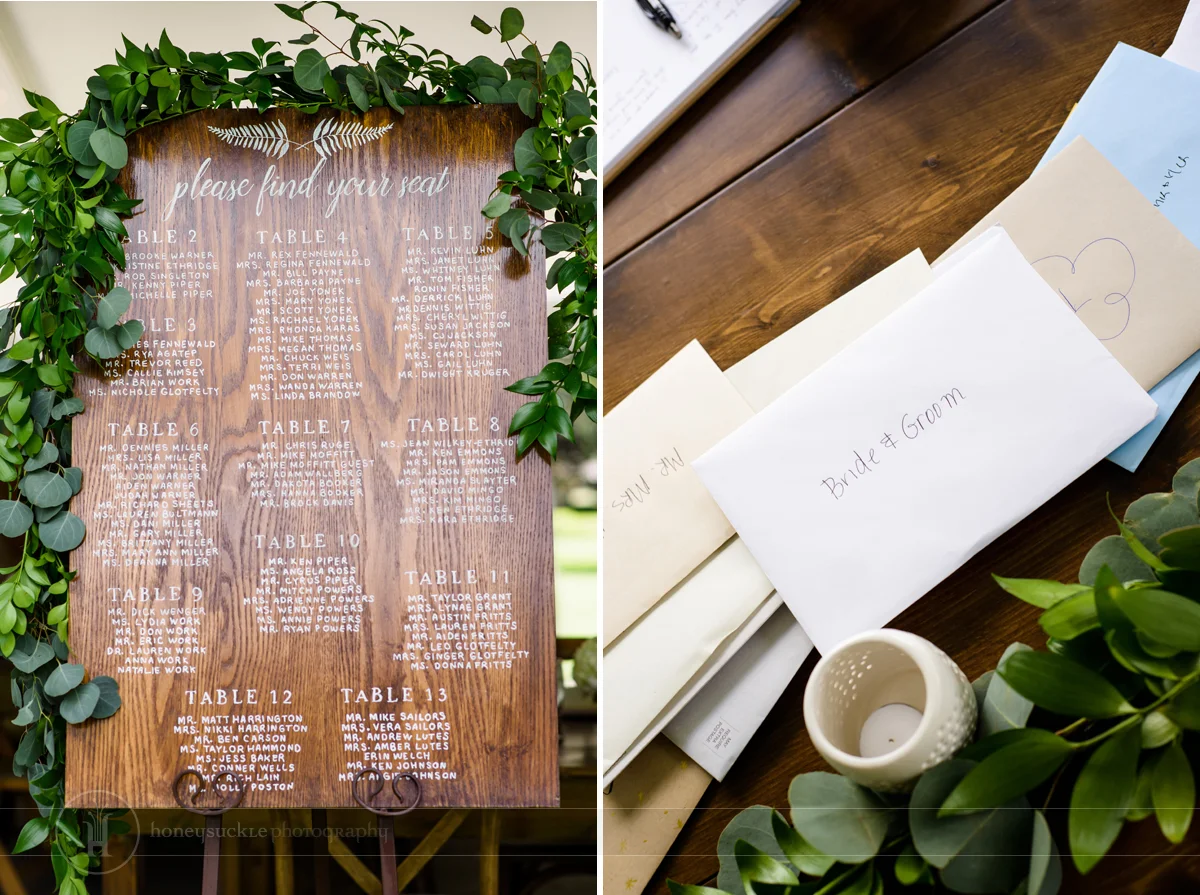 please find your seat
TABLE 2
BROOKE WARNER
ISTINE ETHRIDGE
ROB SINGLETON
KENNY PIPER
MICHELLE PIPER
TABLE 3
FENNEWALD
MS. RYA AGATEP
MR. TREVOR REED
MS. CALLIE KIMSEY
MR. BRIAN WORK
MS. NICHOLE GLOTFELTY
TABLE 4
MR. REX FENNEWALD
MRS. REGINA FENNEWALD
MR. BILL PAYNE
MRS. BARBARA PAYNE
MR. JOE YONEK
MRS. MARY YONEK
MR. SCOTT YONEK
MS. RACHAEL YONEK
MRS. RHONDA KARAS
MR. MIKE THOMAS
MRS. MEGAN THOMAS
MR. CHUCK WEIS
MRS. TERRI WEIS
MR. DON WARREN
MRS. WANDA WARREN
MS. LINDA BRANDOW
TABLE 5
MR. KEVIN LUHN
MRS. JANET LUHN
MS. WHITNEY LUHN
MR. TOM FISHER
RONIN FISHER
MR. DERRICK LUHN
MR. DENNIS WITTIG
MRS. CHERYL WITTIG
MRS. SUSAN JACKSON
MS. CJ JACKSON
MR. SEWARD LUHN
MRS. CAROL LUHN
MS. GAIL LUHN
MR. DWIGHT KRUGER
TABLE 6
MR. DENNIES MILLER
MRS. LISA MILLER
MR. NATHAN MILLER
MR. JON WARNER
AIDEN WARNER
JUDAH WARNER
MR. RICHARD SHEETS
MS. LAUREN BULTMANN
MS. DANI MILLER
MR. GARY MILLER
MS. BRITTANY MILLER
MRS. MARY ANN MILLER
MS. DEANNA MILLER
TABLE 7
MR. CHRIS RUGE
MR. MIKE MOFFITT
MR. MIKE MOFFITT GUEST
MR. ADAM WALLBERG
MR. DAKOTA BOOKER
MRS. HANNA BOOKER
MR. BROCK DAVIS
TABLE 8
MS. JEAN WILKEY-ETHRID
MR. KEN EMMONS
MRS. PAM EMMONS
MR. JASON EMMONS
MS. MIRANDA SLAYTER
MR. DAVID MINGO
MRS. MINGO
MR. KEN ETHRIDGE
MRS. KARA ETHRIDGE
TABLE 9
MR. DICK WENGER
MS. LYDIA WORK
MR. DON WORK
MR. ERIC WORK
DR. LAUREN WORK
ANNA WORK
NATALIE WORK
TABLE 10
MR. KEN PIPER
MS. ANGELA ROSS
MR. CYRUS PIPER
MR. MITCH POWERS
MRS. ADRIENNE POWERS
MS. WENDY POWERS
MS. ANNIE POWERS
MR. RYAN POWERS
TABLE 11
MR. TAYLOR GRANT
MRS. LYNAE GRANT
MR. AUSTIN FRITTS
MRS. LAUREN FRITTS
MR. AIDEN FRITTS
MR. LEO GLOTFELTY
MRS. GINGER GLOTFELTY
MS. DONNA FRITTS
TABLE 12
MR. MATT HARRINGTON
MRS. NIKKI HARRINGTON
MR. BEN CARSON
MS. TAYLOR HAMMOND
MS. JESS BAKER
MR. CONNER WELLS
RICH LAIN
HOLLY POSTON
TABLE 13
MR. MIKE SAILORS
MRS. VERA SAILORS
MR. ANDREW LUTES
MRS. AMBER LUTES
ERIN WELCH
MR. KEN JOHNSON
JOHNSON
honeysuckle photography
Bride & Groom
MR. MRS